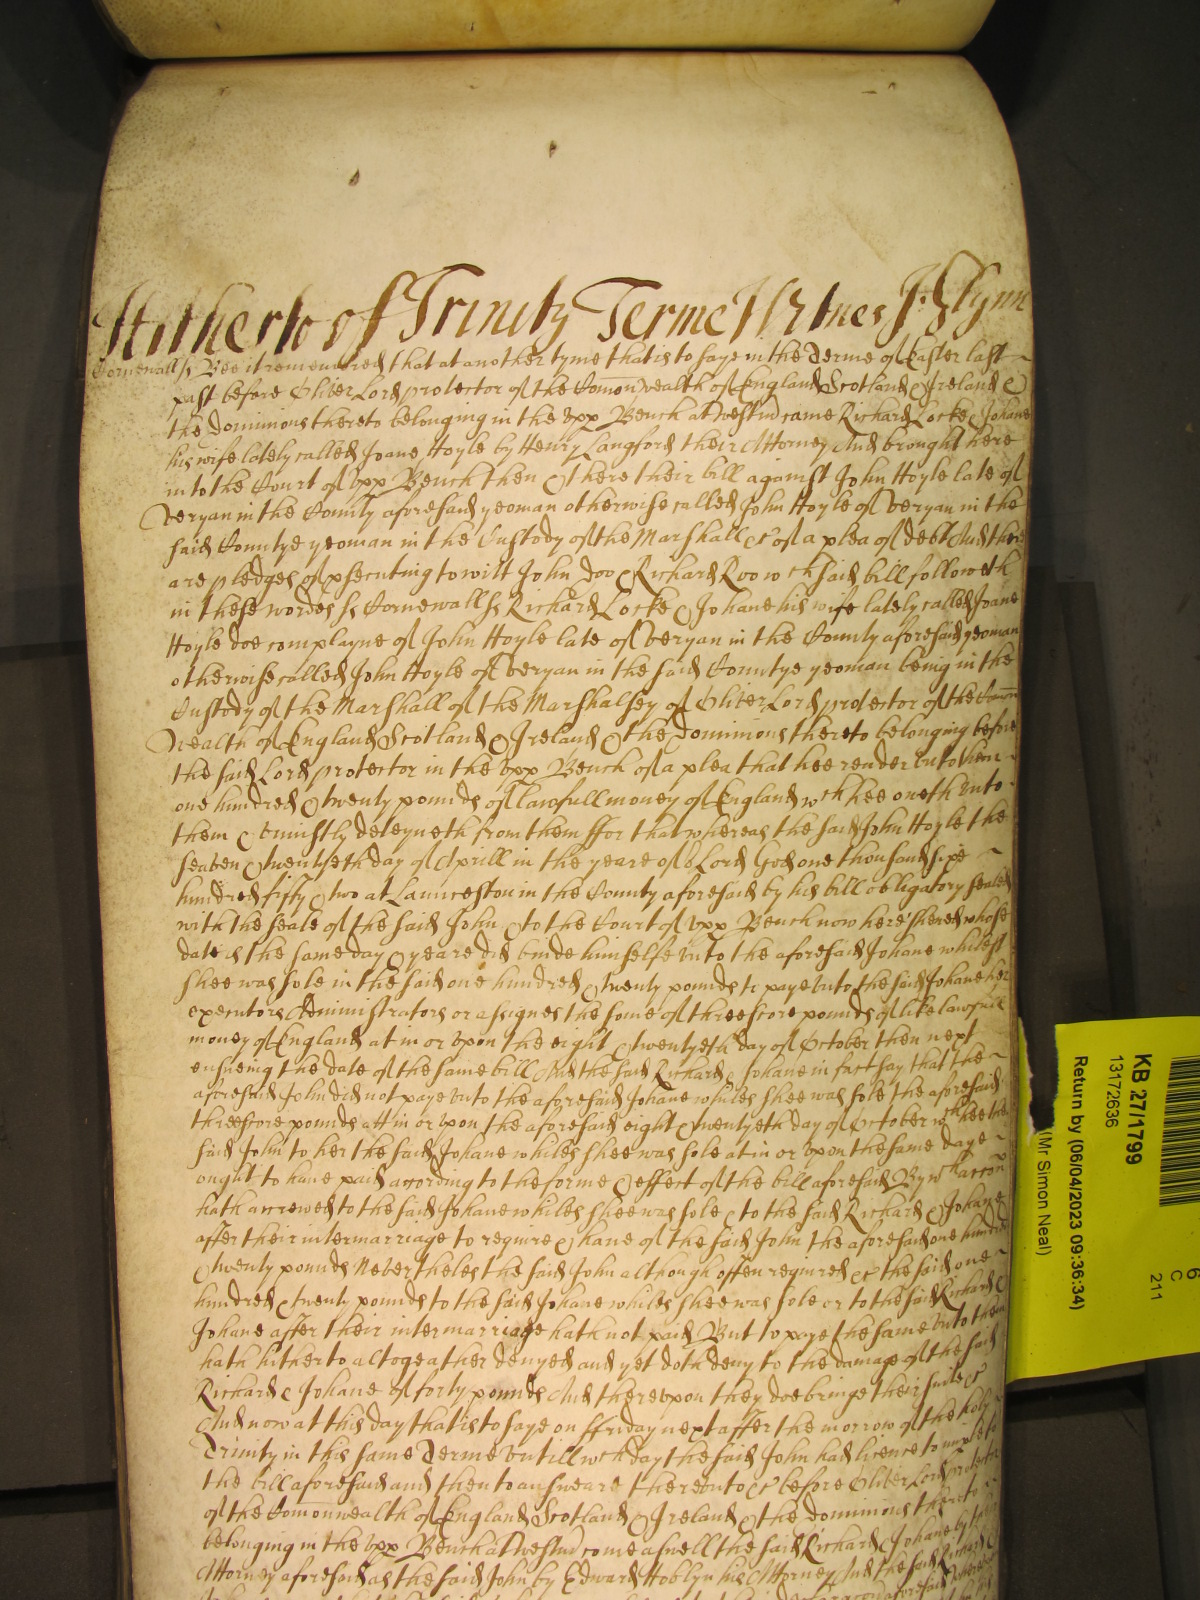 Hitherto of Trinity Terme Witnes J: Glynn
Cornewall ss Bee it remembred that at another tyme that is to saye in the Terme of Easter last
past before Oliver Lord protector of the Comonwealth of England Scotland & Ireland &
the dominions thereto belonging in the vpp Bench at Westm̄ came Richard Locke & Johane
his wife lately called Joane Hoyle by Henry Langford their Attorney And brought here
into the Court of vpp Bench then & there their bill against John Hoyle late of
Veryan in the County aforesaid yeoman otherwise called John Hoyle of Veryan in the
said Countye yeoman in the Custody of the Marshall &c of a plea of debt And there
are pledges of p̱secuting to witt John Doo & Richard Roo wch said bill followeth
in these wordes ss Cornewall ss Richard Locke & Johane his wife lately called Joane
Hoyle doe complayne of John Hoyle late of Veryan in the County aforesaid yeoman
otherwise called John Hoyle of Veryan in the said Countye yeoman being in the
Custody of the Marshall of the Marshalsey of Oliver Lord protector of the Comon
wealth of England Scotland & Ireland & the dominions thereto belonging before
the said Lord protector in the vpp Bench of a plea that hee render vnto them
one hundred & twenty pounds of lawfull money of England wch hee oweth vnto
them & vniustly deteyneth from them ffor that whereas the said John Hoyle the
seaven & twentyeth day of Aprill in the yeare of o Lord God one thousand sixe
hundred fifty & two at Launceston in the County aforesaid by his bill obligatory sealed
with the seale of the said John & to the Court of vpp Bench now here shewed whose
date is the same day & yeare did binde himselfe vnto the aforesaid Johane whilest
shee was sole in the said one hundred & twenty pounds to paye vnto the said Johane her
executors Administrators or assignes the some of threescore pounds of like lawfull
money of England at in or vpon the eight & twentyeth day of October then next
ensueing the date of the same bill And the said Richard & Johane in fact say that the
aforesaid John did not paye vnto the aforesaid Johane whiles shee was sole the aforesaid
threescore pounds att in or vpon the aforesaid eight & twentyeth day of October wch hee the
said John to her the said Johane whiles shee was sole at in or vpon the same daye
ought to haue paid according to the forme & effect of the bill aforesaid By wch accon
hath accrewed to the said Johane whiles shee was sole & to the said Richard & Johane
after their intermarriage to require & haue of the said John the aforesaid one hundred
& twenty pounds Neverthelesse the said John although often required &c the said one
hundred & twenty pounds to the said Johane whiles shee was sole or to the said Richard &
Johane after their intermarriage hath not paid But to paye the same vnto them
hath hitherto altogeather denyed and yet doth deny to the damage of the said
Richard & Johane of forty pounds And therevpon they doe bringe their suite &c
And now at this day that is to saye on ffriday next after the morrow of the holy
Trinity in this same Terme vntill wch day the said John had licence to imparle to
the bill aforesaid and then to answeare therevnto &c before Oliver Lord protector
of the Comonwealth of England Scotland & Ireland & the dominions thereto
belonging in the vpp Bench at Westm̄ come aswell the said Richard & Johane by their
Attorney aforesaid as the said John by Edward Hoblyn his Attorney And the said Richard
KB 27/1799
13172636
Return by (06/04/2023 09:36:34)
(Mr Simon Neal)
6
C
211